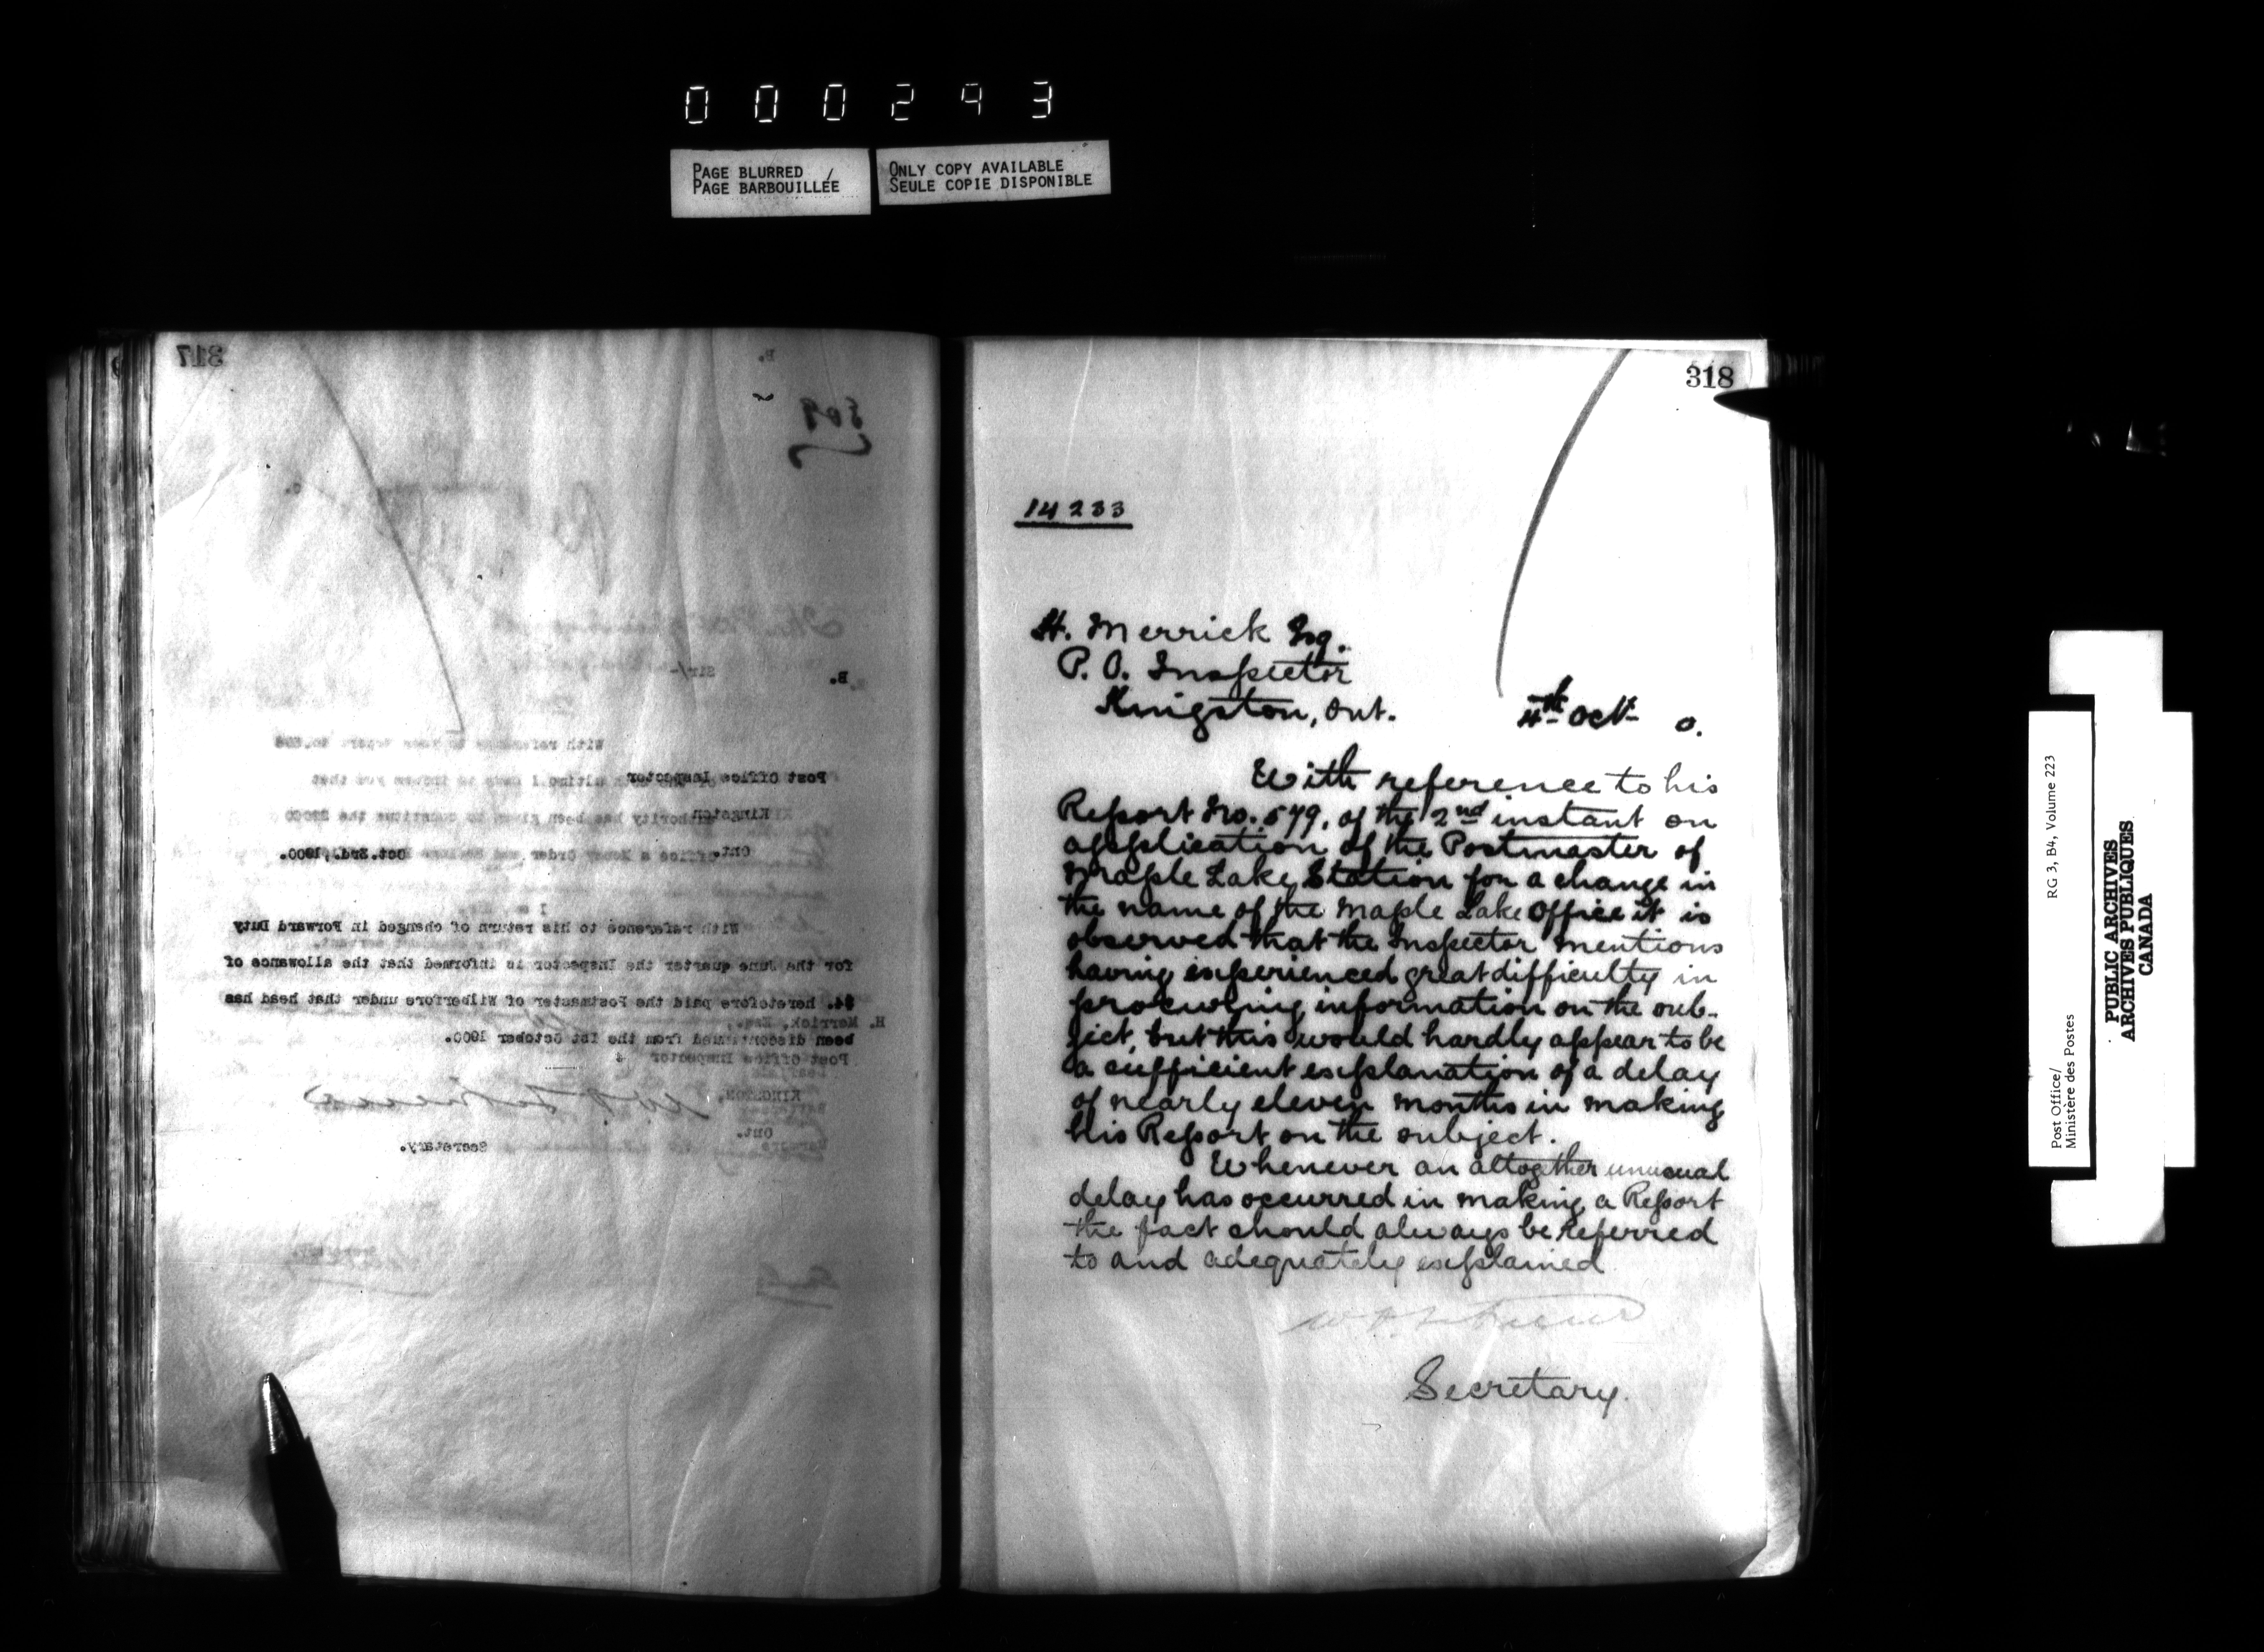 000293
PAGE BLURRED /
PAGE BARBOUILLÉE
ONLY COPY AVAILABLE
SEULE COPIE DISPONIBLE
317
B.
509
Sir/-
B.
With reference to
Post Office Inspector
Kingston
Ont.
Oct. 3rd., 1900.
With reference to his return of changed in Forward Duty
for the June quarter the Inspector is informed that the allowance of
$4. heretofore paid the Postmaster of Wilberfore under that head has
H. Merrick, Esq.,
been discontinued from the 1st October 1900.
Post Office Inspector
KINGSTON,
Ont.
Secretary.
318
14233
H. Merrick Esq.
P. O. Inspector
Kingston, Ont.
4th Oct. 0.
With reference to his
Report No. 579, of the 2nd instant on
application of the Postmaster of
Maple Lake Station for a change in
the name of the Maple Lake Office it is
observed that the Inspector mentions
having experienced great difficulty in
procuring information on the sub-
ject, but this would hardly appear to be
a sufficient explanation of a delay
of nearly eleven months in making
his Report on the subject.
Whenever an altogether unusual
delay has occurred in making a Report
the fact should always be referred
to and adequately explained
Secretary.
Post Office/
Ministère des Postes
RG 3, B4, Volume 223
PUBLIC ARCHIVES
ARCHIVES PUBLIQUES
CANADA